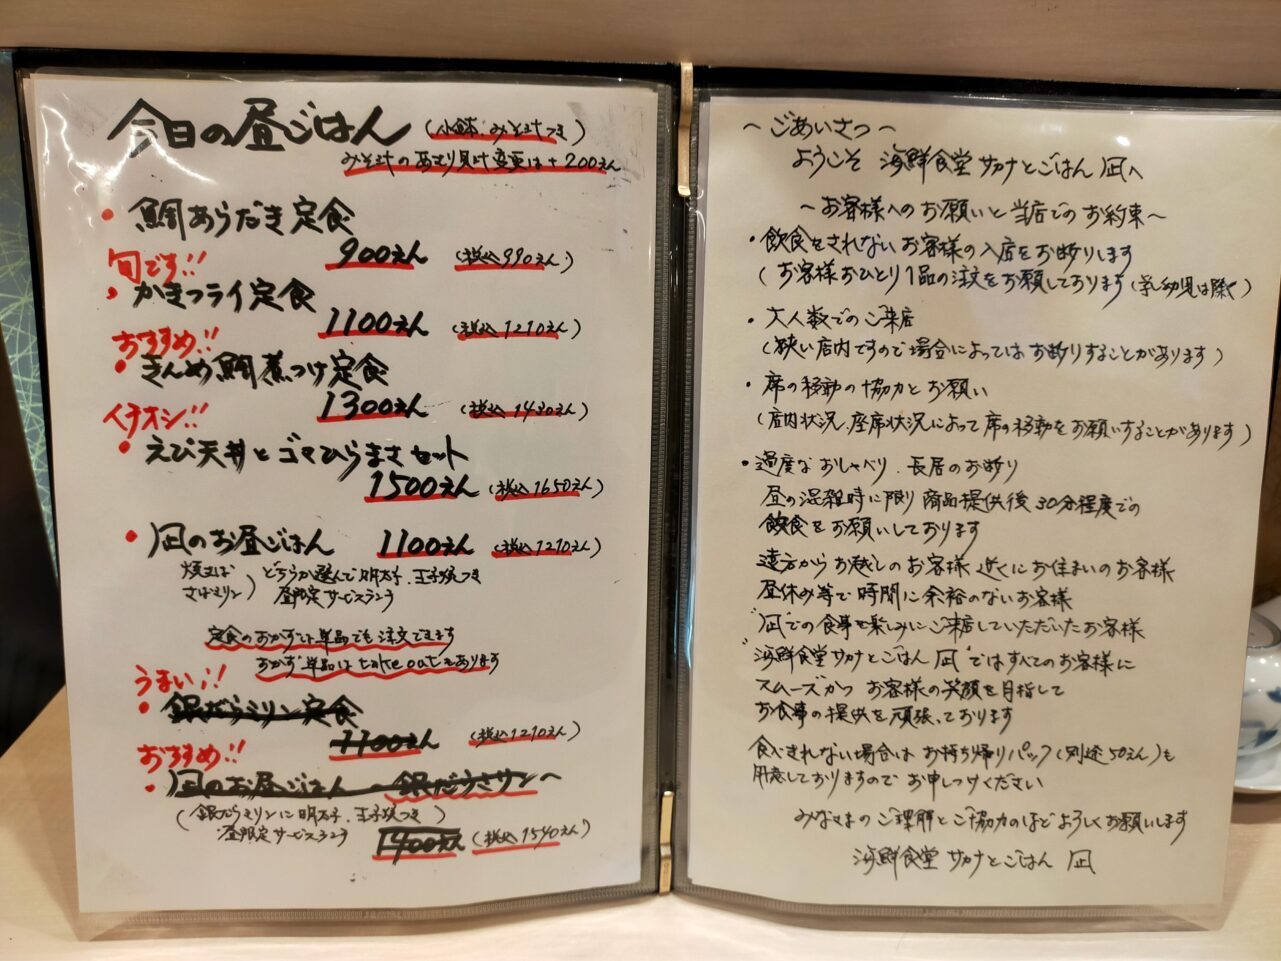 今日の昼ごはん (小鉢、みそ汁つき)
みそ汁のあさり貝汁変更は+200えん
・鯛あらだき定食
900えん (税込990えん)
旬です!!
・かきフライ定食
1100えん (税込1210えん)
おすすめ!!
・きんめ鯛煮つけ定食
1300えん (税込1430えん)
イチオシ!!
・えび天丼とゴマひらまさセット
1500えん (税込1650えん)
・凪のお昼ごはん 1100えん (税込1210えん)
焼さば
さばミリン
) どちらか選んで明太子、玉子焼つき
昼限定サービスランチ
定食のおかずは単品でも注文できます
おかず単品はtake outもあります
うまい!!
・銀だらミリン定食
1100えん (税込1210えん)
おすすめ!!
・凪のお昼ごはん ～銀だらミリン～
(銀だらミリンに明太子、玉子焼つき)
昼限定サービスランチ
1400えん (税込1540えん)
～ごあいさつ～
ようこそ 海鮮食堂 サカナとごはん 凪へ
～お客様へのお願いと当店でのお約束～
・飲食をされないお客様の入店をお断りします
(お客様おひとり1品の注文をお願しております(乳幼児は除く)
・大人数でのご来店
(狭い店内ですので場合によってはお断りすることがあります)
・席の移動の協力とお願い
(店内状況、座席状況によって席の移動をお願いすることがあります)
・過度なおしゃべり、長居のお断り
昼の混雑時に限り 商品提供後30分程度での
飲食をお願いしております
遠方からお越しのお客様 近くにお住まいのお客様
昼休み等で時間に余裕のないお客様
"凪"での食事を楽しみにご来店していただいたお客様
"海鮮食堂サカナとごはん 凪"ではすべてのお客様に
スムーズかつ お客様の笑顔を目指して
お食事の提供を頑張っております
食べきれない場合は お持ち帰りパック(別途50えん)も
用意しておりますので お申しつけください
みなさまのご理解とご協力のほどよろしくお願いします
海鮮食堂 サカナとごはん 凪